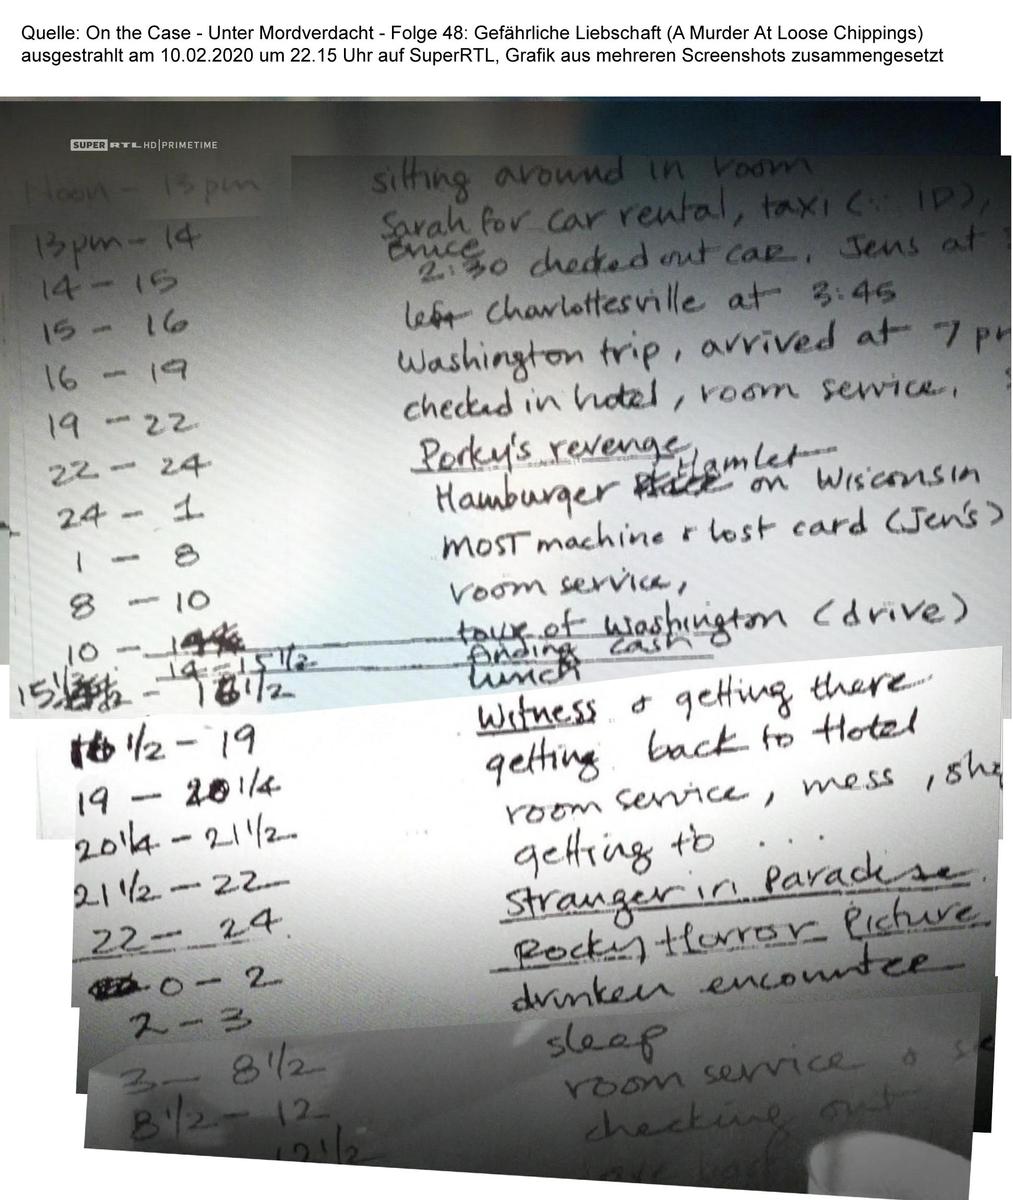 Quelle: On the Case - Unter Mordverdacht - Folge 48: Gefährliche Liebschaft (A Murder At Loose Chippings)
ausgestrahlt am 10.02.2020 um 22.15 Uhr auf SuperRTL, Grafik aus mehreren Screenshots zusammengesetzt
SUPER RTL HD|PRIMETIME
Noon - 13 pm sitting around in room
13 pm - 14 Sarah for car rental, taxi (∵ ID),
14 - 15 2:30 checked out car, Jens at
15 - 16 left Charlottesville at 3:45
16 - 19 Washington trip, arrived at 7
19 - 22 checked in hotel, room service,
22 - 24 Porky's revenge
24 - 1 Hamburger Hamlet on Wisconsin
1 - 8 MOST machine & lost card (Jens's)
8 - 10 room service,
10 - 14 tour of Washington (drive)
14 - 15 1/2 finding cash
lunch
16 1/2 - 19 Witness & getting there
19 - 20 1/4 getting back to Hotel
20 1/4 - 21 1/2 room service, mess,
21 1/2 - 22 getting to ....
22 - 24 Stranger in Paradise
0 - 2 Rocky Horror Picture
2 - 3 drunken encounter
3 - 8 1/2 sleep
8 1/2 - 12 room service &
12 1/2 checking out